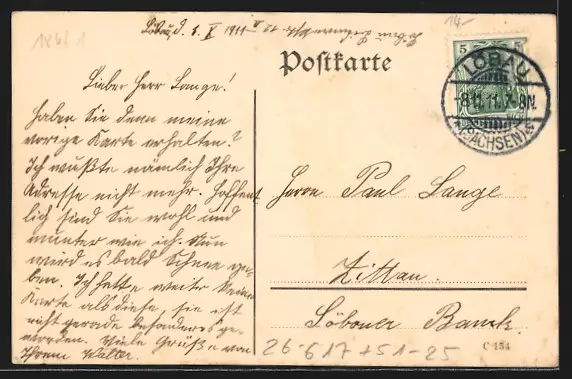 186/1
14.-
Löbau, d. 1. X 1911
Postkarte
5 5
LÖBAU
8.11.11. 7-8N.
(SACHSEN)
Lieber Herr Lange!
Haben Sie denn meine
vorige Karte erhalten?
Ich wußte nämlich Ihre
Adresse nicht mehr. Hoffent
lich sind Sie wohl und
munter wie ich. Nun
wird es bald Schnee ge-
ben. Ich hatte weiter keine
Karte als diese, sie ist
nicht gerade besonderes ge-
worden. Viele Grüße von
Ihrem Walter.
Herrn Paul Lange
Zittau.
Löbauer Bank.
26-617+51-25
C 154